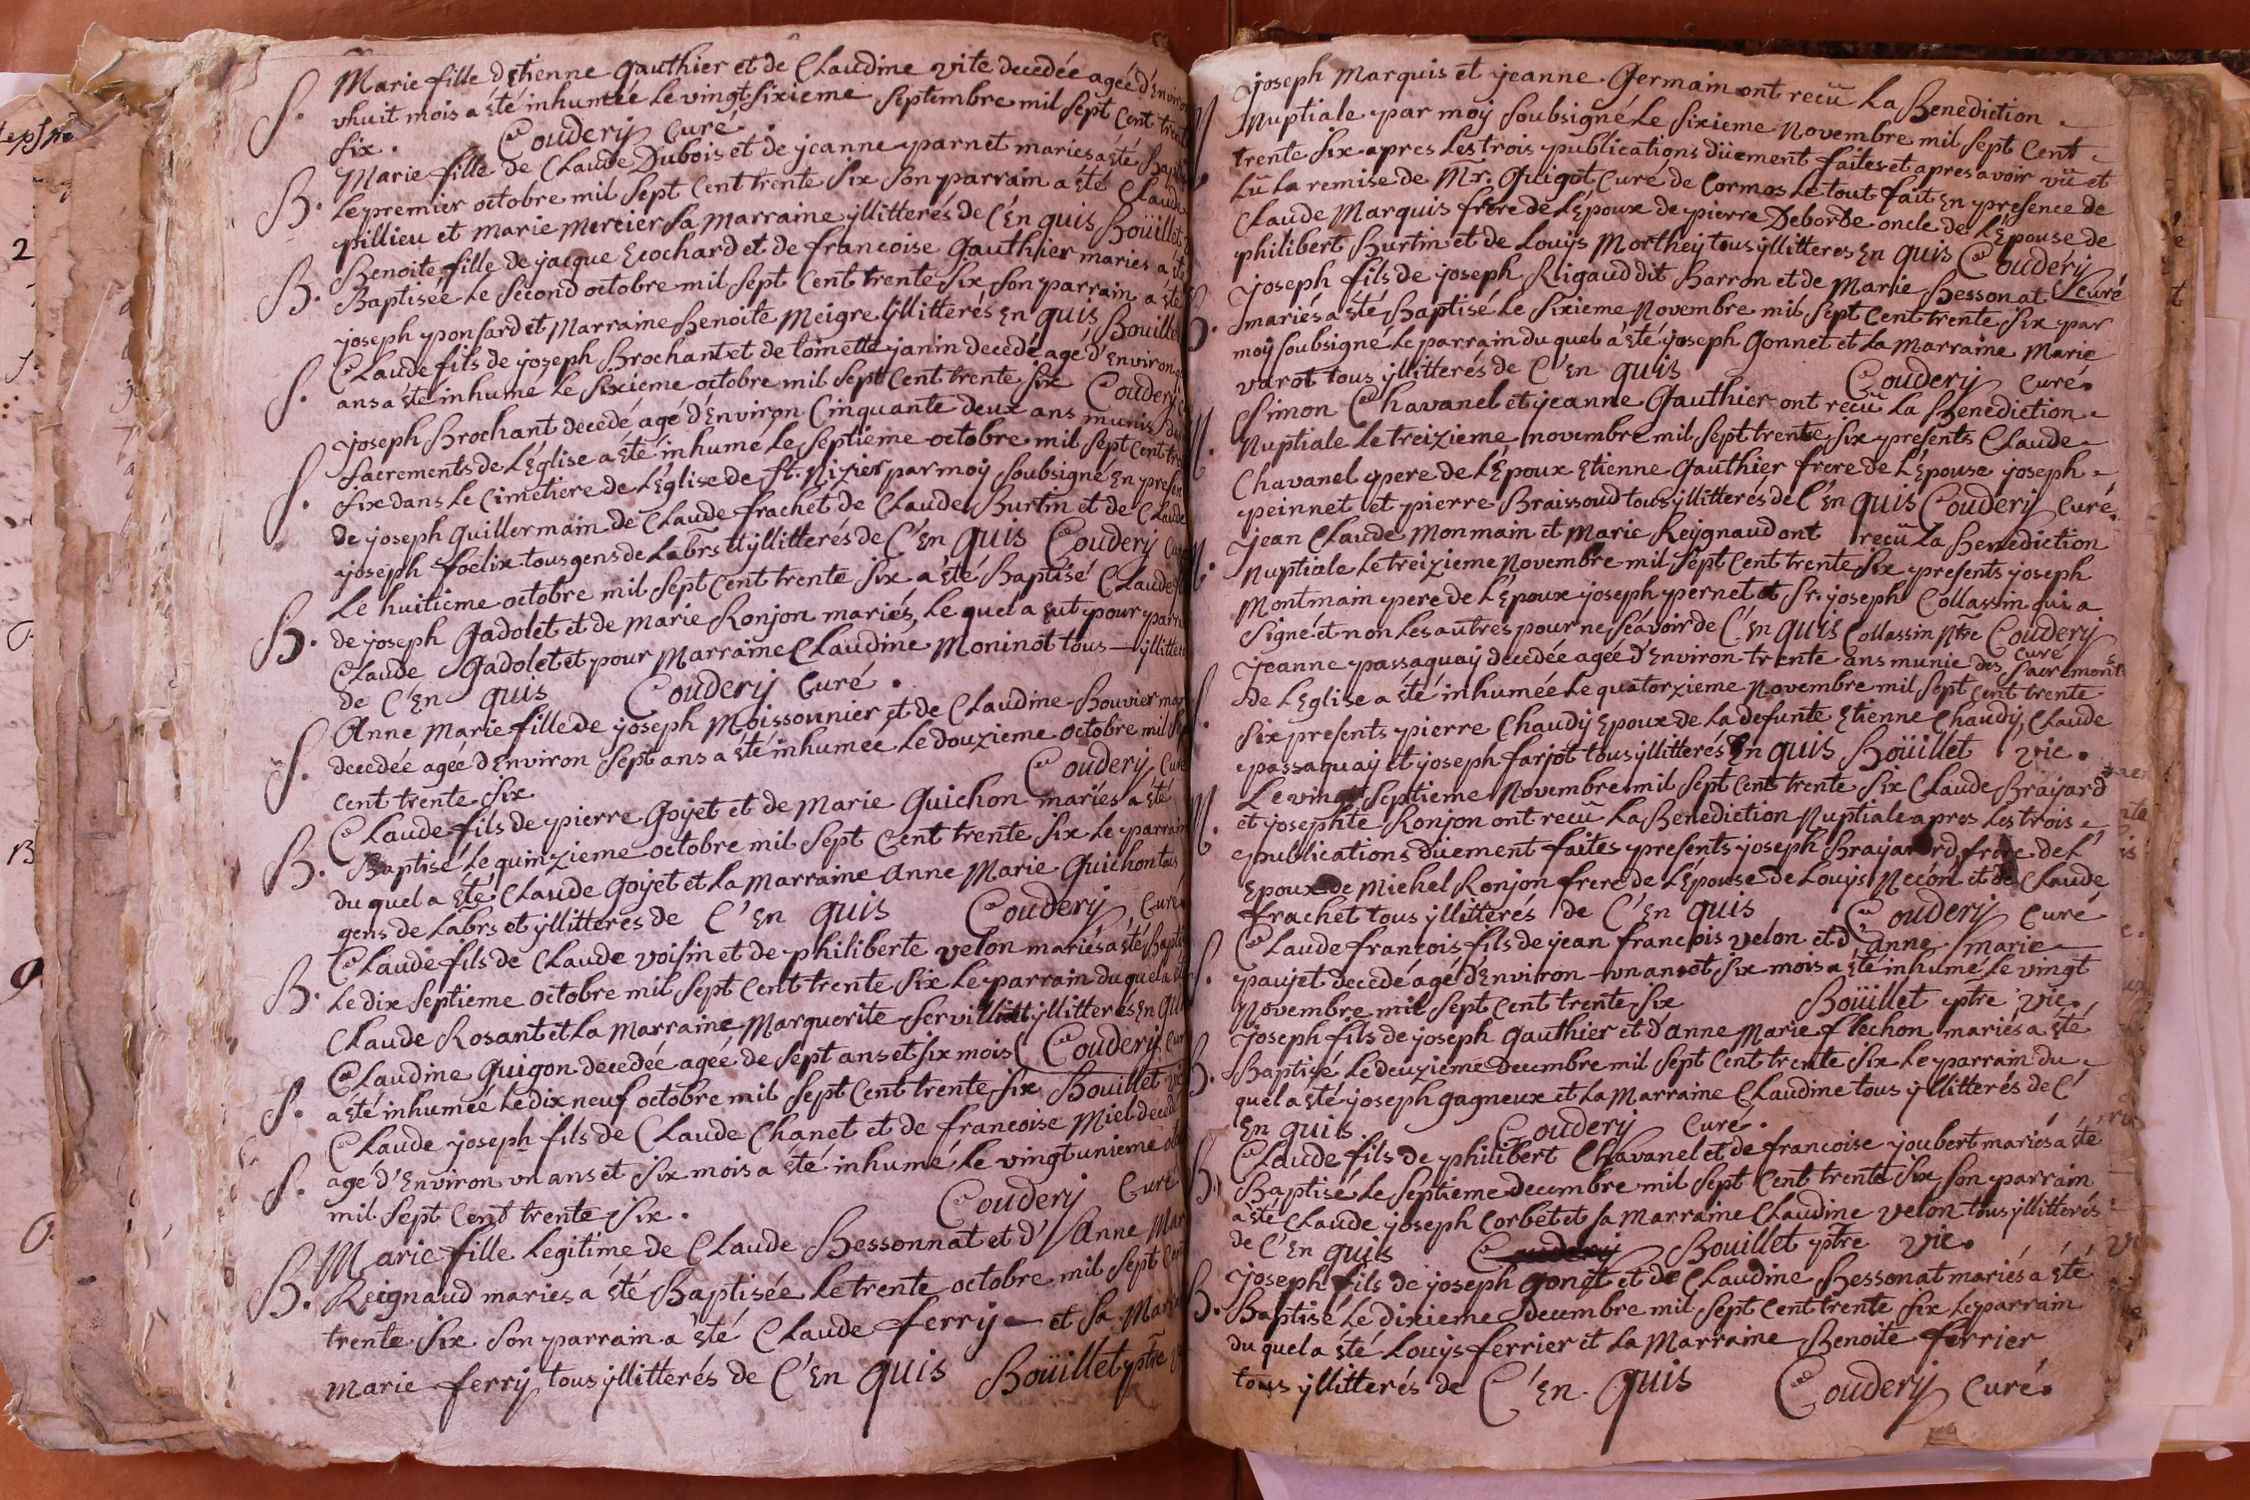 S. Marie fille d'Etienne Gauthier et de Claudine vite decedée ageé d'Environ
vhuit mois a été inhumée Le vingt Sixieme Septembre mil Sept Cent trente
Six. Coudery Curé.
B. Marie fille de Claude Dubois et de jeanne parnet mariés a été Baptisée
Le premier octobre mil Sept Cent trente Six Son parrain a été Claude
pillieu et marie Mercier Sa Marraine yllitterés de C'En quis Boüillet
B. Benoite fille de jacque Ecochard et de francoise Gauthier mariés a été
Baptisée Le Second octobre mil Sept Cent trente Six, Son parrain a été
joseph ponsard et Marraine Benoite Meigre yllitterés En quis Boüillet
S. Claude fils de joseph Brochant et de toinette janin decedé agé d'Environ
ans a été inhumé Le Sixieme octobre mil Sept Cent trente Six Coudery
S. joseph Brochant decedé agé d'Environ Cinquante deux ans munis des
Sacrements de L'Eglise a été inhumé Le Septieme octobre mil Sept Cent trente
Six dans Le Cimetiere de L'Eglise de St. Nizier par moy Soubsigné En presence
de joseph Guillermain de Claude frachet de Claude Burtin et de Claude
joseph foelix tous gens de Labrs et yllitterés de C'En quis Coudery Curé
B. Le huitieme octobre mil Sept Cent trente Six a été Baptisé Claude
de joseph Gadolet et de Marie Ronjon mariés, Le quel a eut pour parrain
Claude Gadolet et pour Marraine Claudine Moninot tous — yllitterés
de C'En quis Coudery Curé.
S. Anne Marie fille de joseph Moissonnier et de Claudine Bouvier mariés
decedée agée d'Environ Sept ans a été inhumée Le douzieme octobre mil Sept
Cent trente Six Coudery Curé
B. Claude fils de pierre Goyet et de Marie Guichon mariés a été
Baptisé Le quinzieme octobre mil Sept Cent trente Six Le parrain
du quel a été Claude Goyet et La Marraine Anne Marie Guichon tous
gens de Labrs et yllitterés de C'En quis Coudery Curé
B. Claude fils de Claude voisin et de philiberte velon mariés a été Baptisé
Le dix Septieme octobre mil Sept Cent trente Six Le parrain du quel a été
Claude Rosant et La Marraine Marguerite Servilliat yllitterés En quis
S. Claudine Guigon decedée ageé de Sept ans et Six mois Coudery Curé
a été inhumée Le dix neuf octobre mil Sept Cent trente Six Boüillet vic
S. Claude joseph fils de Claude Chanet et de francoise Miel decedé
agé d'Environ vn ans et Six mois a été inhumé Le vingt unieme octobre
mil Sept Cent trente Six. Coudery Curé
B. Marie fille Legitime de Claude Bessonnat et d'Anne Marie
Reignaud mariés a été Baptisée Le trente octobre mil Sept Cent
trente Six Son parrain a été Claude ferry — et Sa Marraine
marie ferry tous yllitterés de C'En quis Boüillet ptre
M. joseph Marquis et jeanne Germain ont reçû La Benediction
Nuptiale par moy Soubsigné Le Sixieme Novembre mil Sept Cent
trente Six apres Les trois publications dûement faites et apres avoir vû et
Lû La remise de Mr. Guigot Curé de Cormos Le tout fait En presence de
Claude Marquis frère de L'Époux de pierre Deborde oncle de L'Épouse de
philibert Burtin et de Louys Morthey tous yllitteres En quis Coudery
Curé
B. joseph fils de joseph Rigaud dit Barron et de Marie Bessonat
mariés a été Baptisé Le Sixieme Novembre mil Sept Cent trente Six par
moy Soubsigné Le parrain du quel a été joseph Gonnet et La Marraine Marie
varot tous yllitterés de C'En quis Coudery Curé.
M. Simon Chavanel et jeanne Gauthier ont reçû La Benediction
Nuptiale Le treizieme novembre mil Sept trente Six presents Claude
Chavanel pere de L'Époux Etienne Gauthier frere de L'Épouse joseph
peinnet et pierre Braissoud tous yllitterés de C'En quis Coudery Curé.
M. jean Claude Monmain et Marie Reygnaud ont reçû La Benediction
Nuptiale Le treizieme Novembre mil Sept Cent trente Six presents joseph
Montmain pere de L'Époux joseph pernet et Sr. joseph Collassin qui a
Signé et non Les autres pour ne Sçavoir de C'En quis Collassin Ntre Coudery
Curé
S. jeanne passaquay decedée agée d'Environ trente ans munie des Sacrements
de L'Eglise a été inhumée Le quatorzieme Novembre mil Sept Cent trente
Six presents pierre Chaudy Epoux de La defunte Etienne Chaudy, Claude
passaquay et joseph farjot tous yllitterés En quis Boüillet vic.
M. Le vingt Septieme Novembre mil Sept Cent trente Six Claude Brayard
et josephte Ronjon ont reçû La Benediction Nuptiale apres Les trois
publications dûement faites presents joseph Brayard frère de L'
Epoux de Michel Ronjon frere de L'Épouse de Louys Neçon et de Claude
frachet tous yllitterés de C'En quis Coudery Curé
S. Claude francois fils de jean francois velon et d'anne marie
paujet decedé agé d'Environ vn an et Six mois a été inhumé Le vingt
Novembre mil Sept Cent trente Six Boüillet ptre vic.
B. joseph fils de joseph Gauthier et d'anne Marie flechon mariés a été
Baptisé Le deuzieme decembre mil Sept Cent trente Six Le parrain du
quel a été joseph gagneux et La Marraine Claudine tous yllitterés de C'
En quis Coudery Curé.
B. Claude fils de philibert Chavanel et de francoise joubert mariés a été
Baptisé Le Septieme decembre mil Sept Cent trente Six Son parrain
a été Claude joseph Corbet et Sa Marraine Claudine velon tous yllitterés
de C'En quis Coudery Boüillet ptre vic.
B. joseph fils de joseph Gonet et de Claudine Bessonat mariés a été
Baptisé Le dixieme decembre mil Sept Cent trente Six Le parrain
du quel a été Louys ferrier et La Marraine Benoite ferrier
tous yllitterés de C'En quis Coudery Curé.